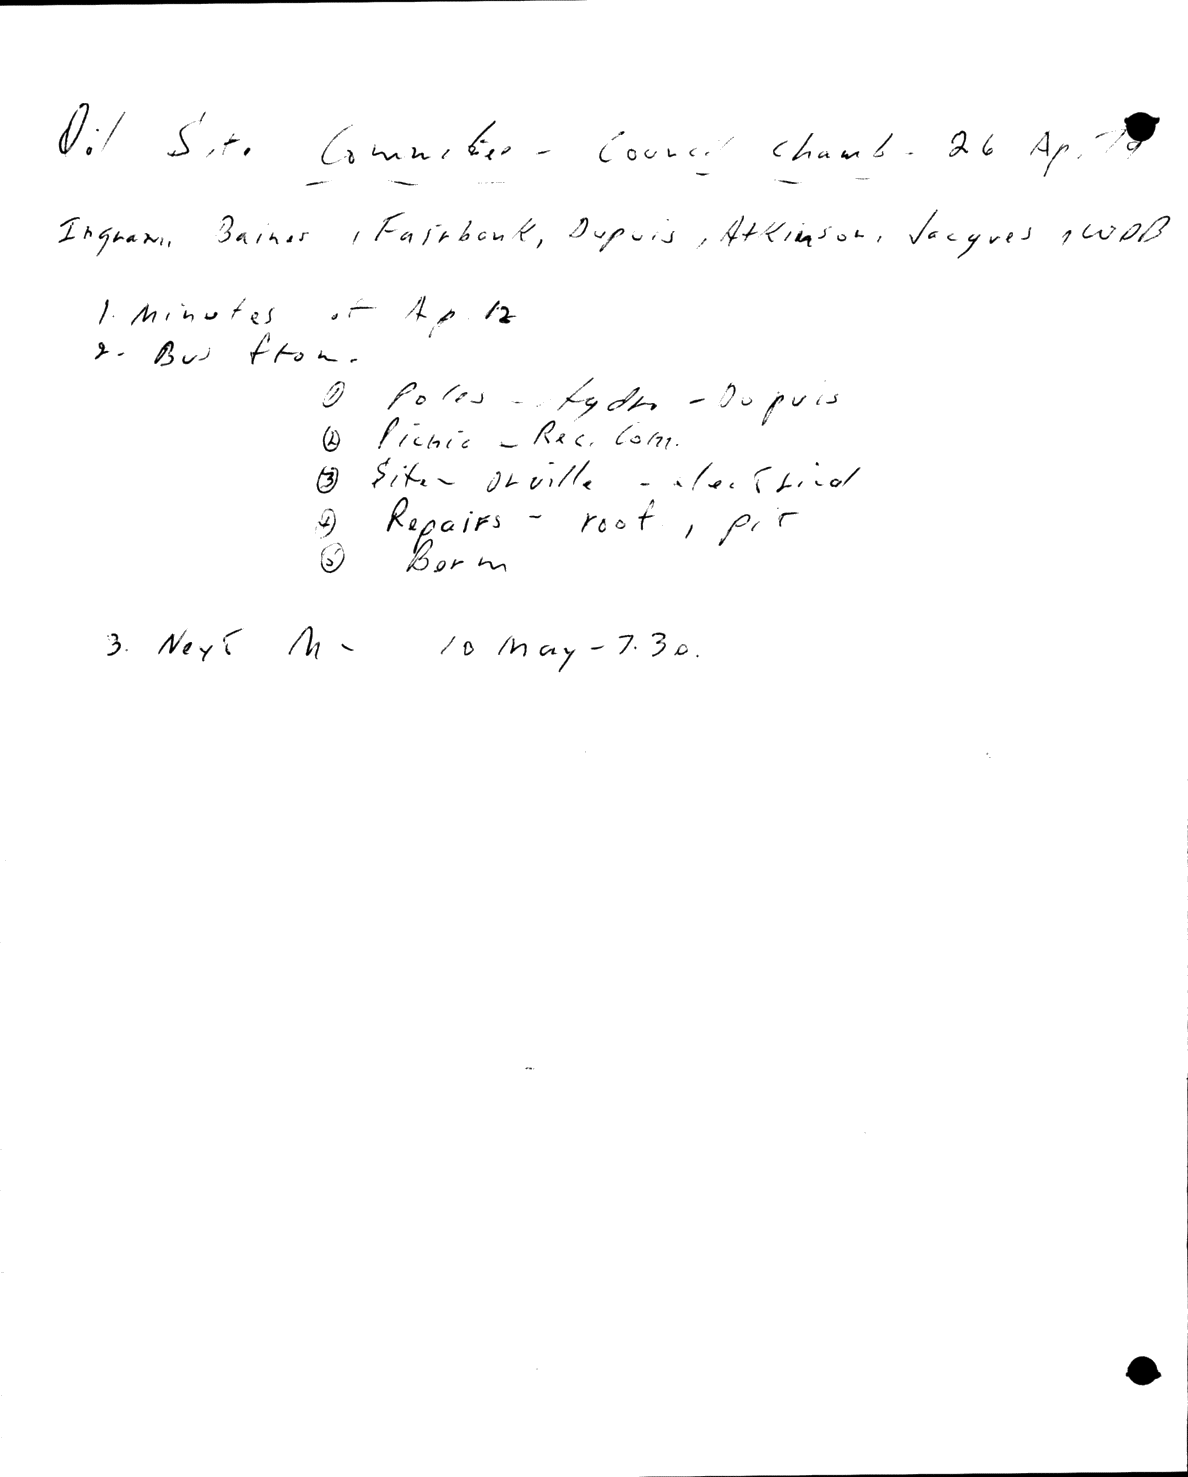 Oil Site Committee - Council Chamb. 26 Ap. 79
Ingram, Baines, Fairbank, Dupuis, Atkinson, Jacques, WDB
1. Minutes of Ap. 12
2. Bus from.
① Poles - Hydro - Dupuis
② Picnic - Rec. Com.
③ Site - Orville - electrical
④ Repairs - roof, pit
⑤ Berm
3. Next M - 10 May - 7.30.